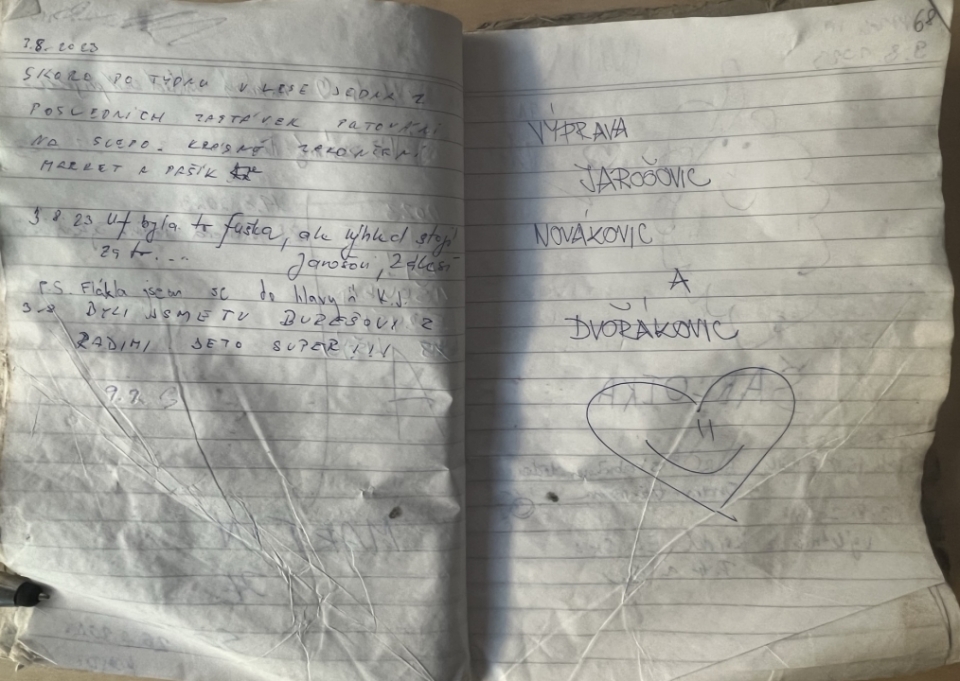 7.8. 2023
SKORO PO TÝDNU V LESE JEDNA Z
POSLEDNÍCH ZASTÁVEK PUTOVÁNÍ
NA SLEPO. KRÁSNÉ ZAKONČENÍ
MARKET A PAŠÍK
3.8.23 Uf byla to fuška, ale výhled stojí
za to....
Jarošovi, 2 dketí
P.S. Flákla jsem se do hlavy K.J.
3.8 BYLI JSME TU BUREŠOVI Z
RADIMI JETO SUPER!!!
9.9.
68
VÝPRAVA
JAROŠOVIC
NOVÁKOVIC
A
DVOŘÁKOVIC